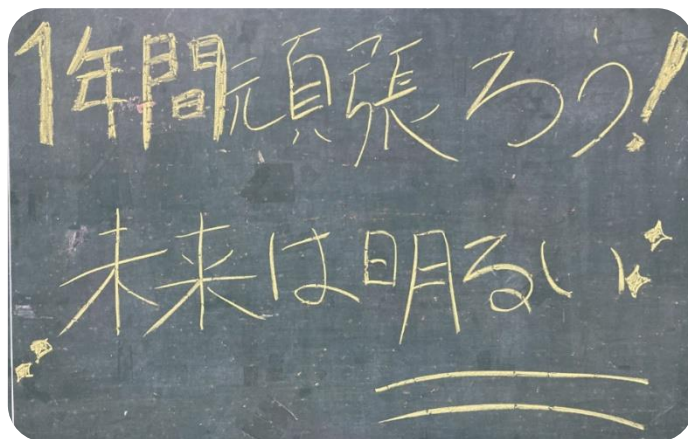 1年間頑張ろう!
未来は明るい